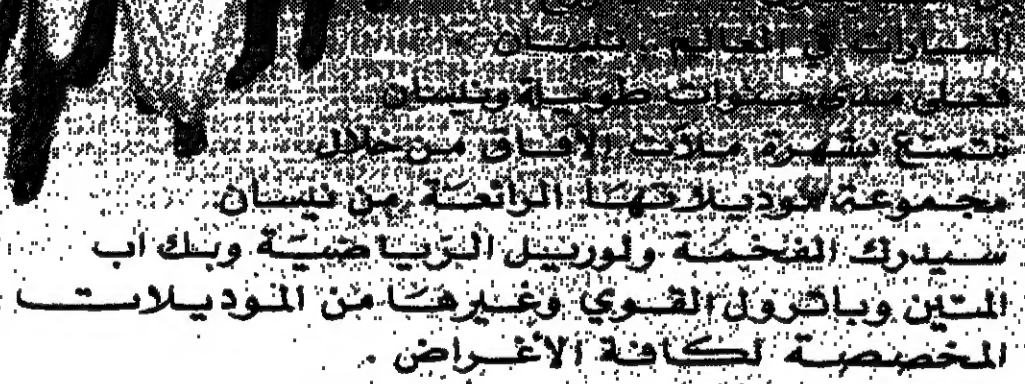 السيارات في العالم - نيسان
فعلى مدى سنوات طويلة ونيسان
تتمتع بشهرة ملأت الآفاق من خلال
مجموعة موديلاتها الرائعة من نيسان
سيدرك الفخمة ولوريل الرياضية وبك اب
المتين وباترول القوي وغيرها من الموديلات
المخصصة لكافة الأغراض .